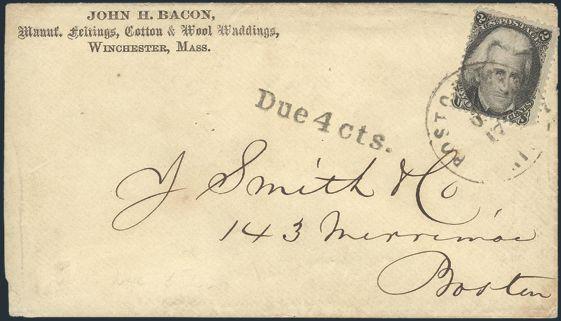 JOHN H. BACON,
Manuf. Feltings, Cotton & Wool Waddings,
WINCHESTER, MASS.
2 U.S. POSTAGE 2
Due 4 cts.
J Smith & Co,
143 Merrimac
Boston